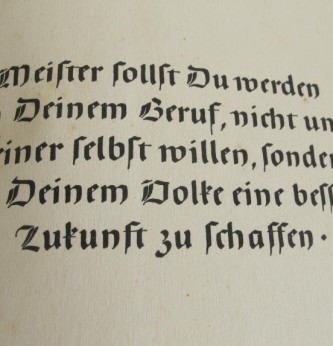 Meister sollst Du werden
Deinem Beruf, nicht um
einer selbst willen, sondern
Deinem Volke eine bess
Zukunft zu schaffen.